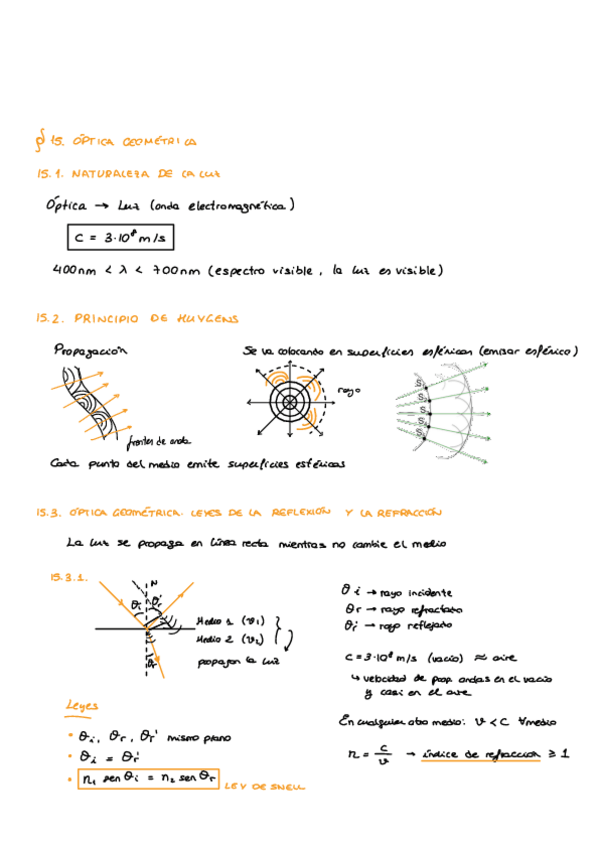 § 15. ÓPTICA GEOMÉTRICA
15.1. NATURALEZA DE LA LUZ
Óptica → Luz (onda electromagnética)
C = 3·10⁸ m/s
400nm < λ < 700nm (espectro visible, la luz es visible)
15.2. PRINCIPIO DE HUYGENS
Propagación
Se va colocando en superficies esféricas (emisor esférico)
rayo
S
S
S
S
S
frentes de onda
Cada punto del medio emite superficies esféricas
15.3. ÓPTICA GEOMÉTRICA. LEYES DE LA REFLEXIÓN Y LA REFRACCIÓN
La luz se propaga en línea recta mientras no cambie el medio
15.3.1.
N
θi θr'
θr
Medio 1 (v₁)
Medio 2 (v₂)
propagan la luz
θi → rayo incidente
θr → rayo refractado
θr' → rayo reflejado
c = 3·10⁸ m/s (vacío) ≈ aire
↳ velocidad de prop. ondas en el vacío
y casi en el aire
En cualquier otro medio: v < c ∀medio
n = c/v → índice de refracción ≥ 1
Leyes
• θi, θr, θr' mismo plano
• θi = θr'
• n₁ sen θi = n₂ sen θr
LEY DE SNELL